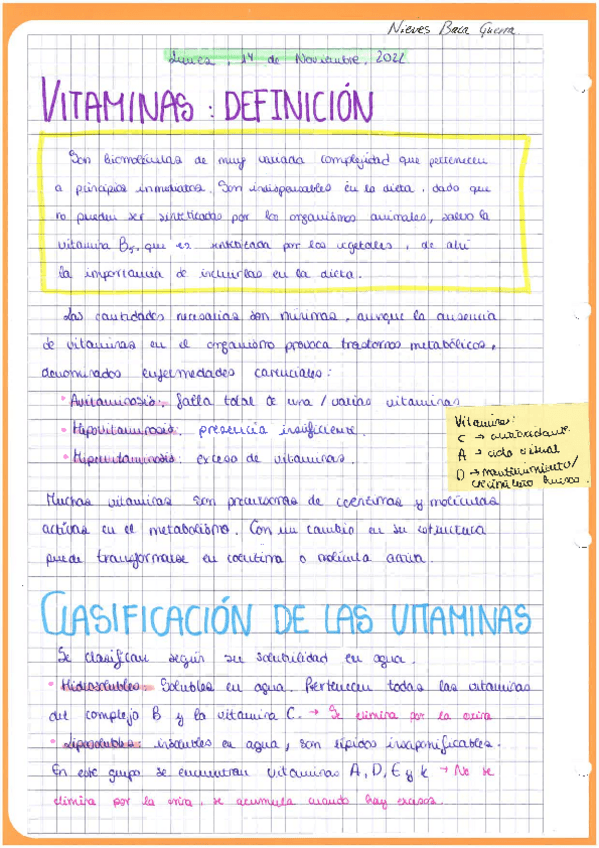 Nieves Baca Guerra
Lunes, 14 de Noviembre, 2022
VITAMINAS: DEFINICIÓN
Son biomoléculas de muy variada complejidad que pertenecen
a principios inmediatos. Son indispensables en la dieta, dado que
no pueden ser sintetizadas por los organismos animales, salvo la
vitamina B5, que es sintetizada por los vegetales, de ahí
la importancia de incluirlas en la dieta.
Las cantidades necesarias son mínimas, aunque la ausencia
de vitaminas en el organismo provoca trastornos metabólicos,
denominados enfermedades carenciales:
· Avitaminosis: falta total de una/varias vitaminas
· Hipovitaminosis: presencia insuficiente.
· Hipervitaminosis: exceso de vitaminas.
Vitaminas:
C → antioxidante.
A → ciclo visual
D → mantenimiento/
crecimiento huesos.
Muchas vitaminas son precursoras de coenzimas y moléculas
activas en el metabolismo. Con un cambio en su estructura
puede transformarse en coenzima o molécula activa.
CLASIFICACIÓN DE LAS VITAMINAS
Se clasifican según su solubilidad en agua.
· Hidrosolubles: Solubles en agua. Pertenecen todas las vitaminas
del complejo B y la vitamina C. → Se elimina por la orina
· Liposolubles: insolubles en agua, son lípidos insaponificables.
En este grupo se encuentran vitaminas A, D, E y K → No se
elimina por la orina, se acumula cuando hay excesos.